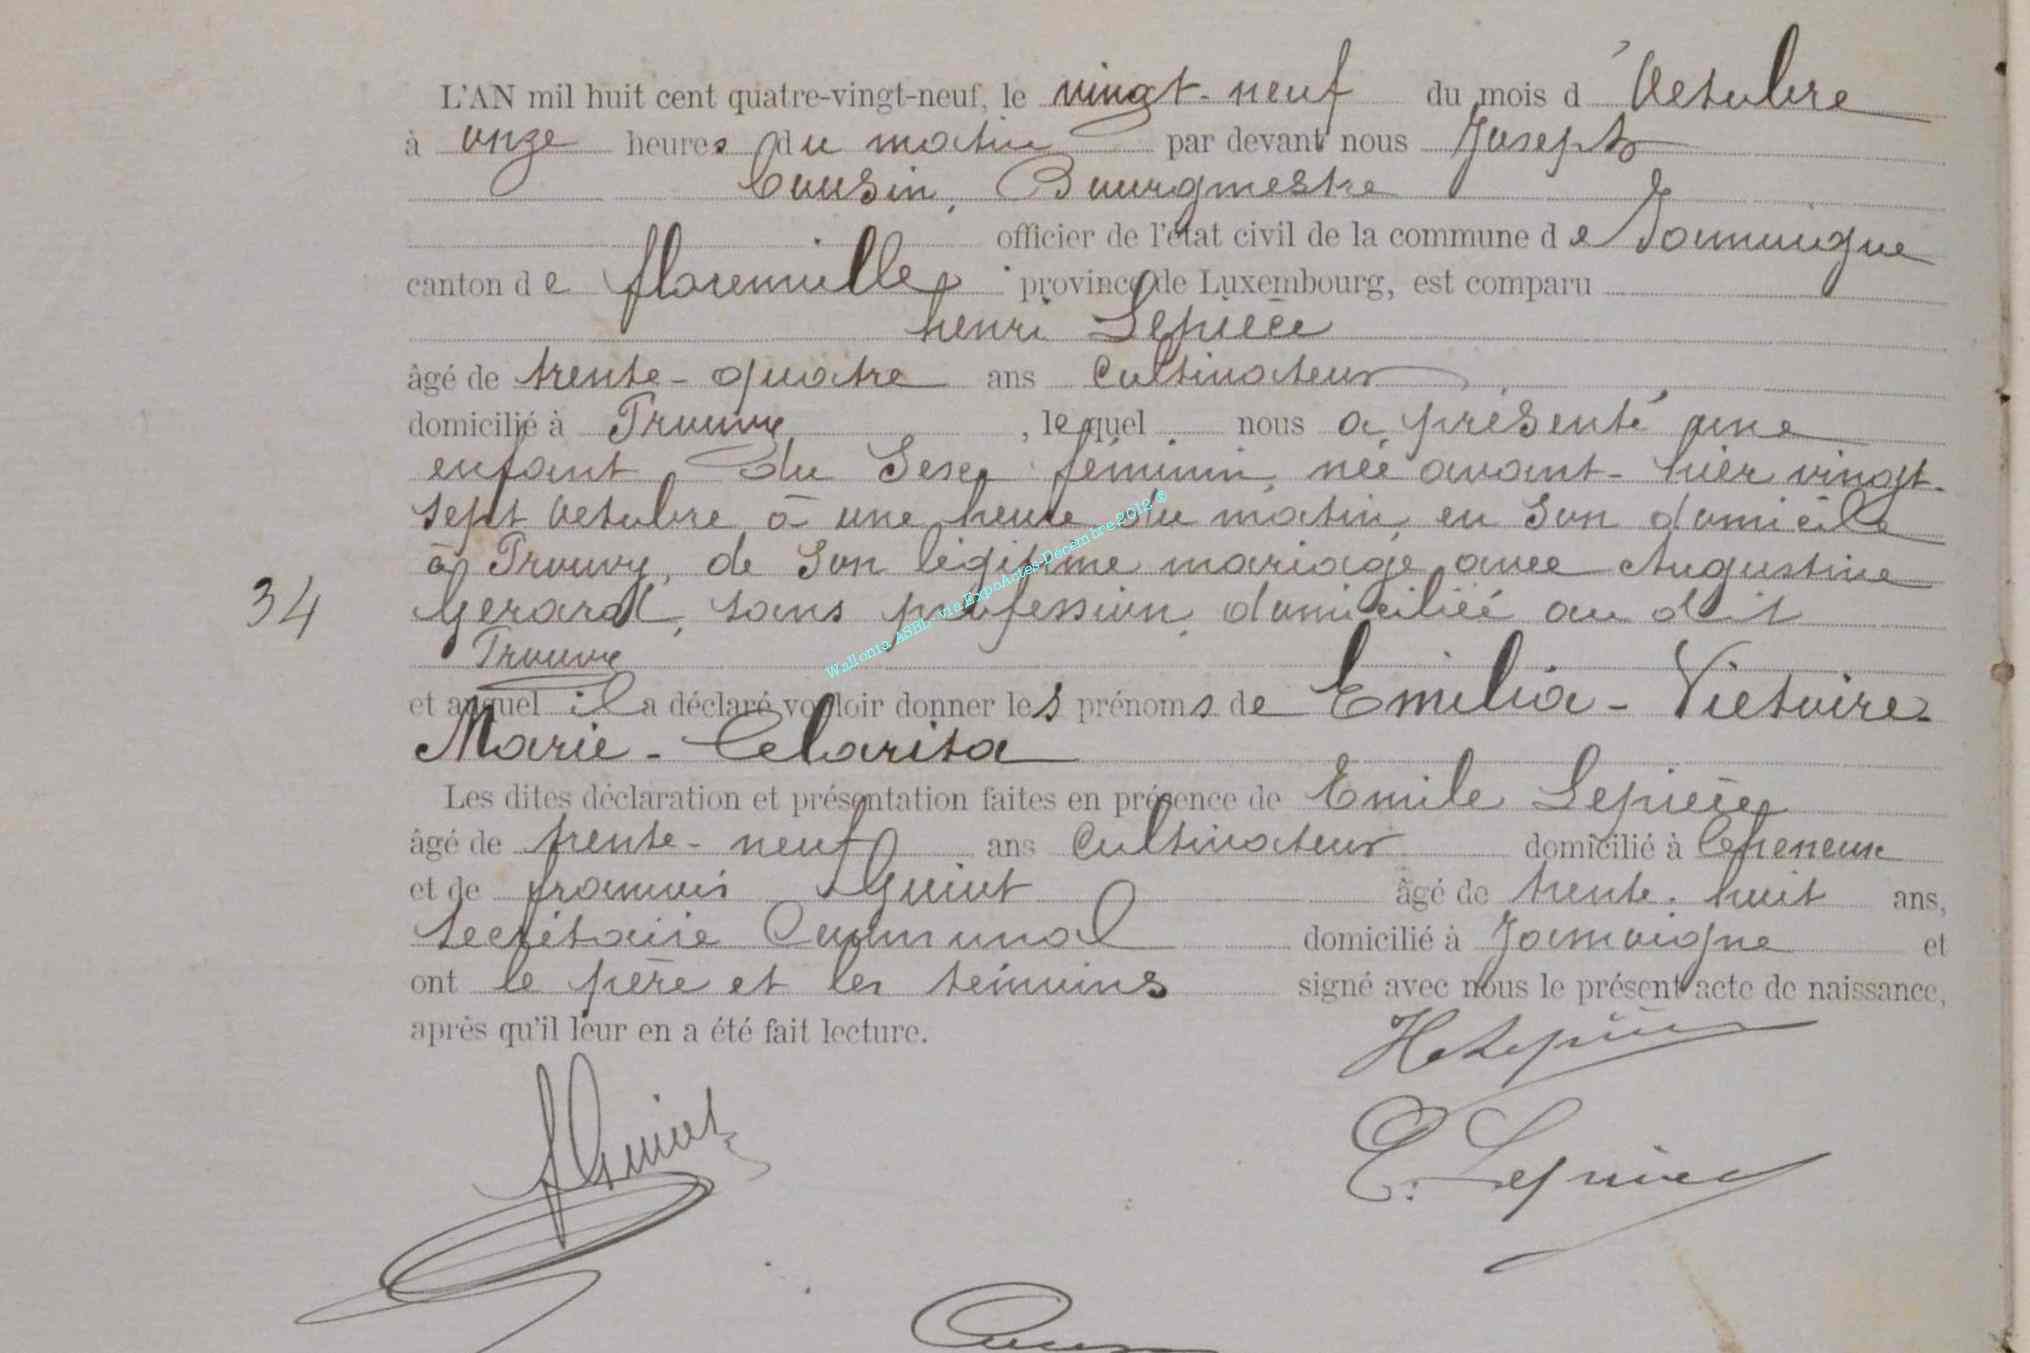 L'AN mil huit cent quatre-vingt-neuf, le vingt-neuf du mois d'Octobre
à onze heures du matin par devant nous Joseph
Cousin, Bourgmestre
officier de l'état civil de la commune de Jamoigne
canton de florenville province de Luxembourg, est comparu
henri Lepièce
âgé de trente-quatre ans Cultivateur
domicilié à Prouvy, lequel nous a présenté une
enfant du Sexe féminin, née avant-hier vingt-
sept Octobre à une heure du matin en Son domicile
à Prouvy, de Son légitime mariage avec Augustine
Gerard, sans profession, domiciliée au dit
34
Prouvy
et auquel il a déclaré vouloir donner les prénoms de Emilia-Victoire-
Marie-Clarisa
Les dites déclaration et présentation faites en présence de Emile Lepièce
âgé de trente-neuf ans Cultivateur domicilié à
et de françois Guiot âgé de trente-huit ans,
secrétaire Communal domicilié à Jamoigne et
ont le père et les témoins signé avec nous le présent acte de naissance,
après qu'il leur en a été fait lecture.
H Lepièce
fGuiot
E. Lepièce
Wallonia ASBL via ExpoActes-Décembre-2012 ®